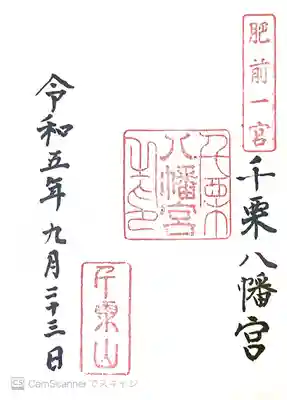 肥前一宮
千栗八幡宮
千栗八幡宮之印
千栗山
令和五年九月二十三日
CS CamScanner でスキャン